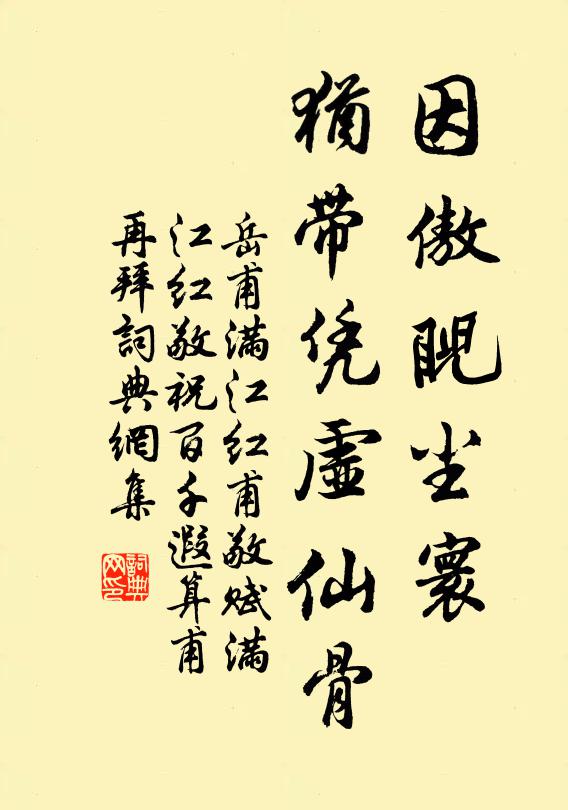 因傲睨尘寰
猶带凭虚仙骨
岳甫满江红甫敬赋满
江红敬祝百千遐算甫
再拜詞典網集
詞典
网印